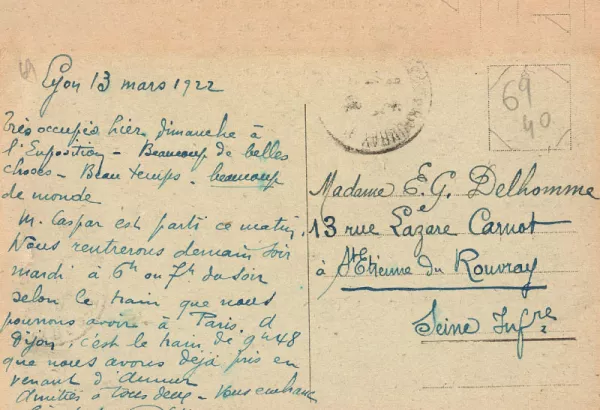 Lyon 13 mars 1922
Très occupés hier dimanche à
l'Exposition - Beaucoup de belles
choses - Beau temps - beaucoup
de monde
M. Caspar est parti ce matin.
Nous rentrerons demain soir
mardi à 6h ou 7h du soir
selon le train que nous
pourrons avoir à Paris. d
Dijon. c'est le train de 9h48
que nous avons déjà pris en
venant d'
amitiés à tous deux - Vous embrasse
Madame E. G. Delhomme
13 rue Lazare Carnot
à St Etienne du Rouvray
Seine Infre
69
40